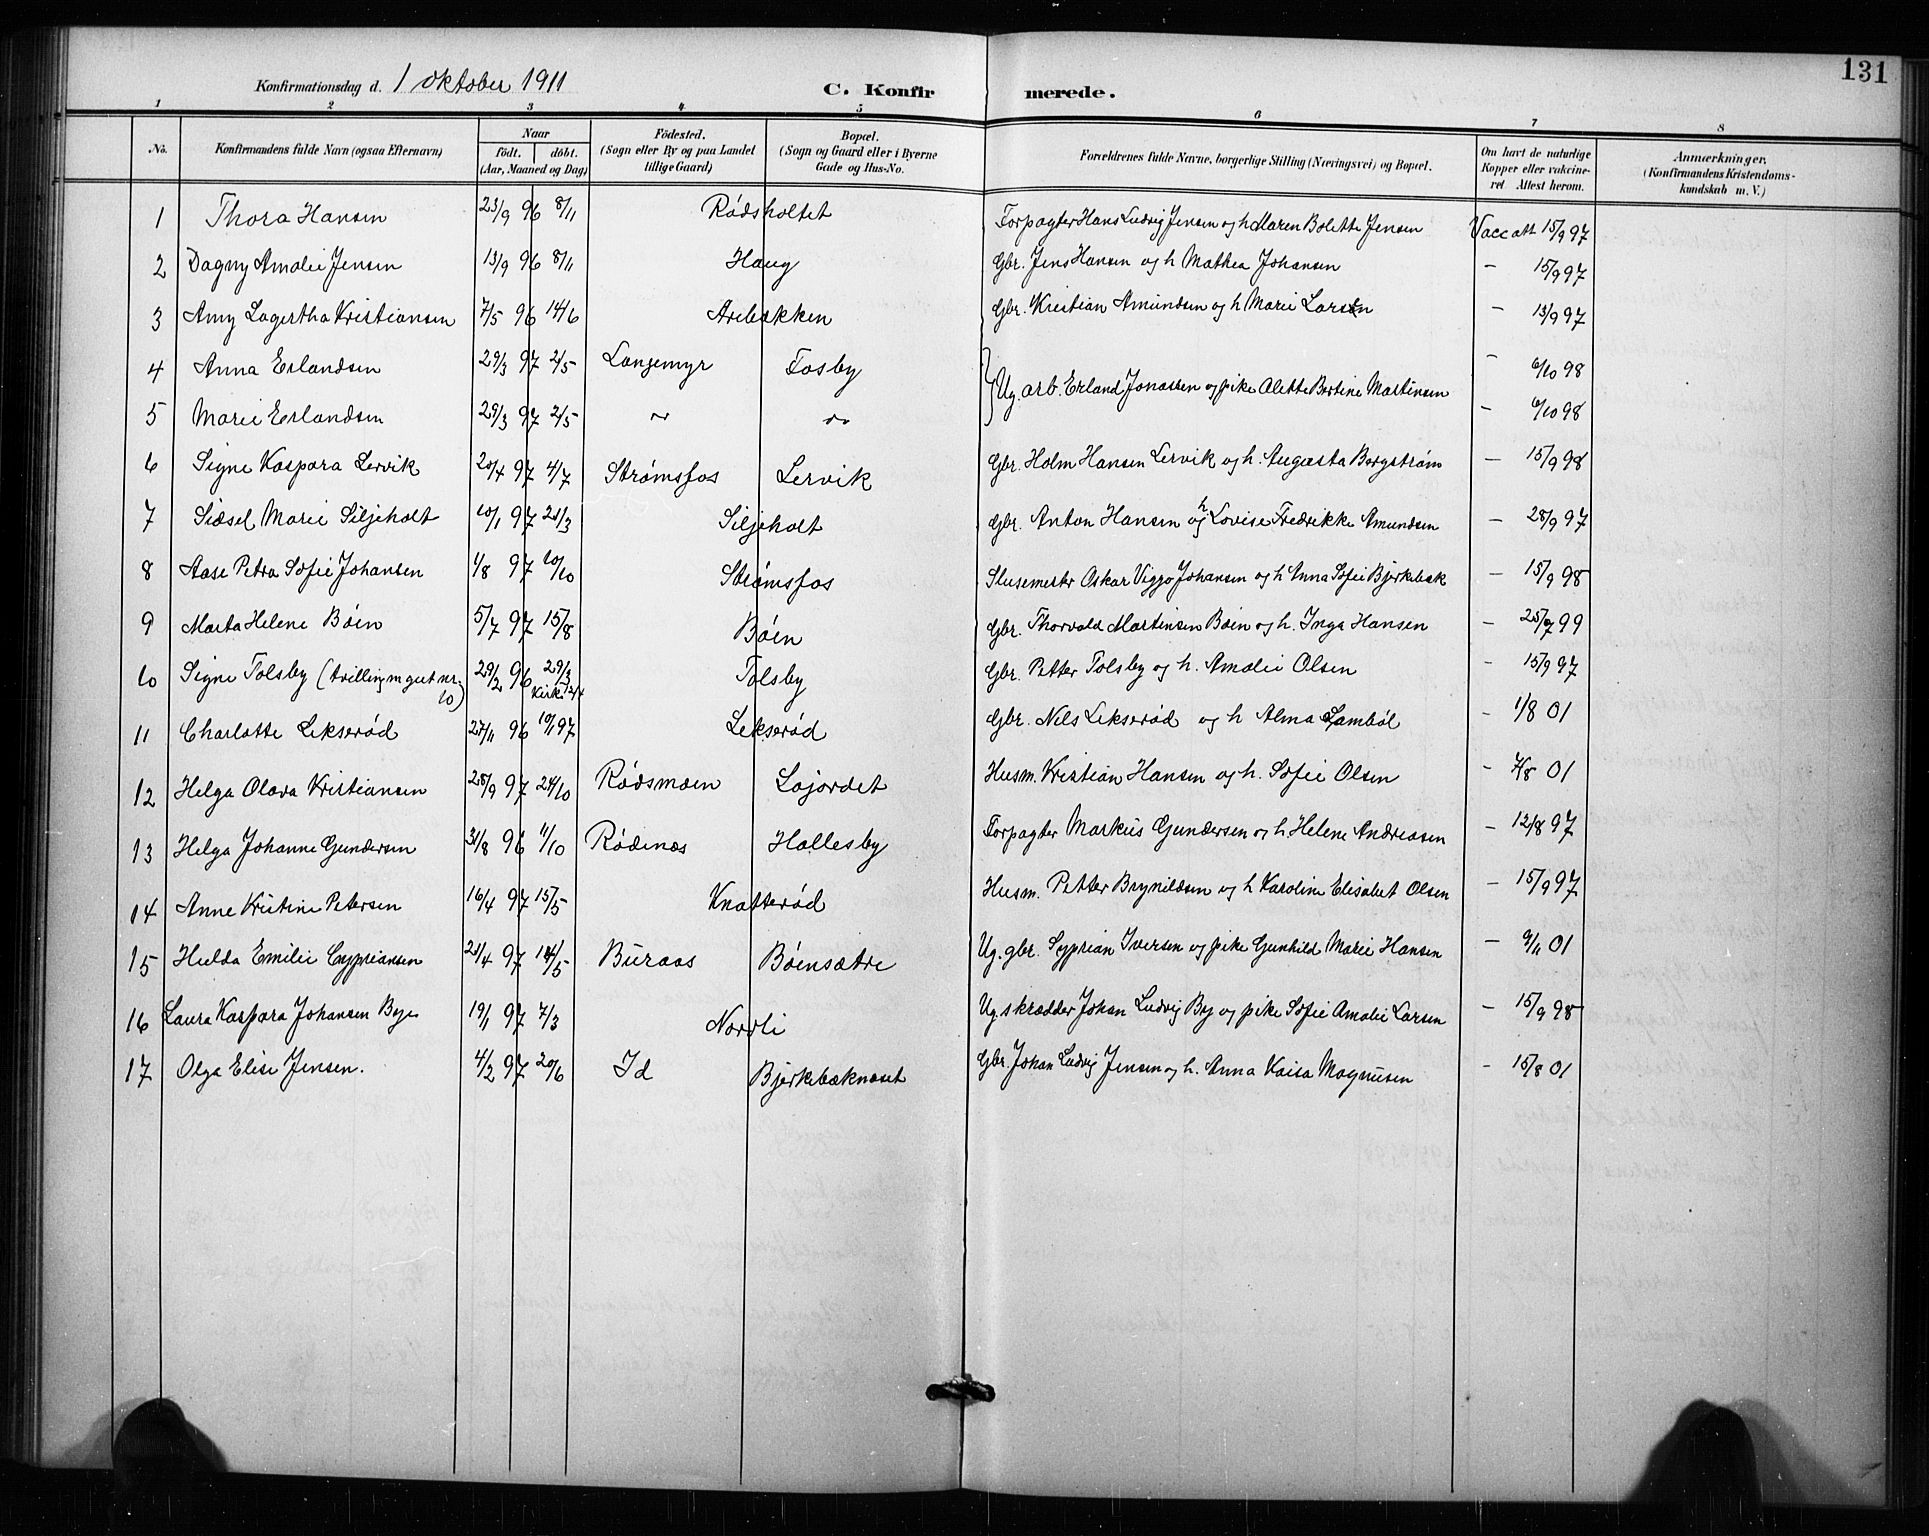 131
Konfirmationsdag d. 1 oktober 1911 C. Konfirmerede.
1 2 3 4 5 6 7 8
No. Konfirmandens fulde Navn (ogsaa Efternavn) Naar født. døbt. (Aar, Maaned og Dag) Fødested. (Sogn eller By og paa Landet tillige Gaard) Bopæl. (Sogn og Gaard eller i Byerne Gade og Hus-No. Forældrenes fulde Navne, borgerlige Stilling (Næringsvei) og Bopæl. Om havt de naturlige Kopper eller vakcineret. Attest herom. Anmærkninger. (Konfirmandens Kristendomskundskab m. V.)
1 Thora Hansen 23/9 96 8/11 Rødsholtet Forpagter Hans Ludvig Jensen og h Maren Bolette Jensen Vacc att 15/9 97
2 Dagny Amalie Jensen 13/9 96 8/11 Haug Gbr. Jens Hansen og h Mathea Johansen - 15/9 97
3 Amy Lagertha Kristiansen 7/5 96 14/6 Arebækken Gbr. Kristian Amundsen og h Marie Larsen - 13/9 97
4 Anna Erlandsen 29/3 97 2/5 Langemyr Fosby - 6/10 98
Ug. arb. Erland Jonassen og pike Alette Bertine Martinsen
5 Marie Erlandsen 29/3 97 2/5 ~ ~ - 6/10 98
6 Signe Kaspara Lervik 20/4 97 4/7 Strømsfos Lervik Gbr. Holm Hansen Lervik og h. Augusta Bergstrøm - 15/9 98
7 Sidsel Marie Siljeholt 10/1 97 21/3 Siljeholt Gbr. Anton Hansen og h Lovise Fredrikke Amundsen - 28/9 97
8 Aase Petra Sofie Johansen 1/8 97 10/10 Strømsfos Slusemester Oskar Viggo Johansen og h Anna Sofie Bjerkebæk - 15/9 98
9 Marta Helene Bøen 5/7 97 15/8 Bøen Gbr. Thorvald Martinsen Bøen og h. Inga Hansen - 99
10 Signe Tolsby (trilling m gut nr. 10) 29/2 96 29/3 Kirke 12/4 Tolsby Gbr. Petter Tolsby og h. Amalie Olsen - 15/9 97
11 Charlotte Lekserød 27/11 96 10/1 97 Lekserød Gbr. Nils Lekserød og h Alma Lambøl - 1/8 01
12 Helga Olava Kristiansen 28/9 97 24/10 Rødsmoen Lojordet Husm. Kristian Hansen og h. Sofie Olsen - 7/8 01
13 Helga Johanne Gundersen 31/8 96 11/10 Rødenes Hallesby Forpagter Markus Gundersen og h Helene Andreasen - 12/8 97
14 Anne Kristine Petersen 16/4 97 15/5 Knatterød Husm. Petter Brynildsen og h Karoline Elisabet Olsen - 15/9 97
15 Hulda Emilie Cypriansen 21/4 97 14/5 Buraas Bøensætre Ug. gbr. Syprian Iversen og pike Gunhild Marie Hansen - 9/11 01
16 Laura Kaspara Johansen Bye 19/1 97 7/3 Nordli Ug. skrædder Johan Ludvig By og pike Sofie Amalie Larsen - 15/9 98
17 Olga Elise Jensen. 4/2 97 20/6 Id Bjerkbæknæset Gbr. Johan Ludvig Jensen og h. Anna Kaisa Magnusen - 15/8 01